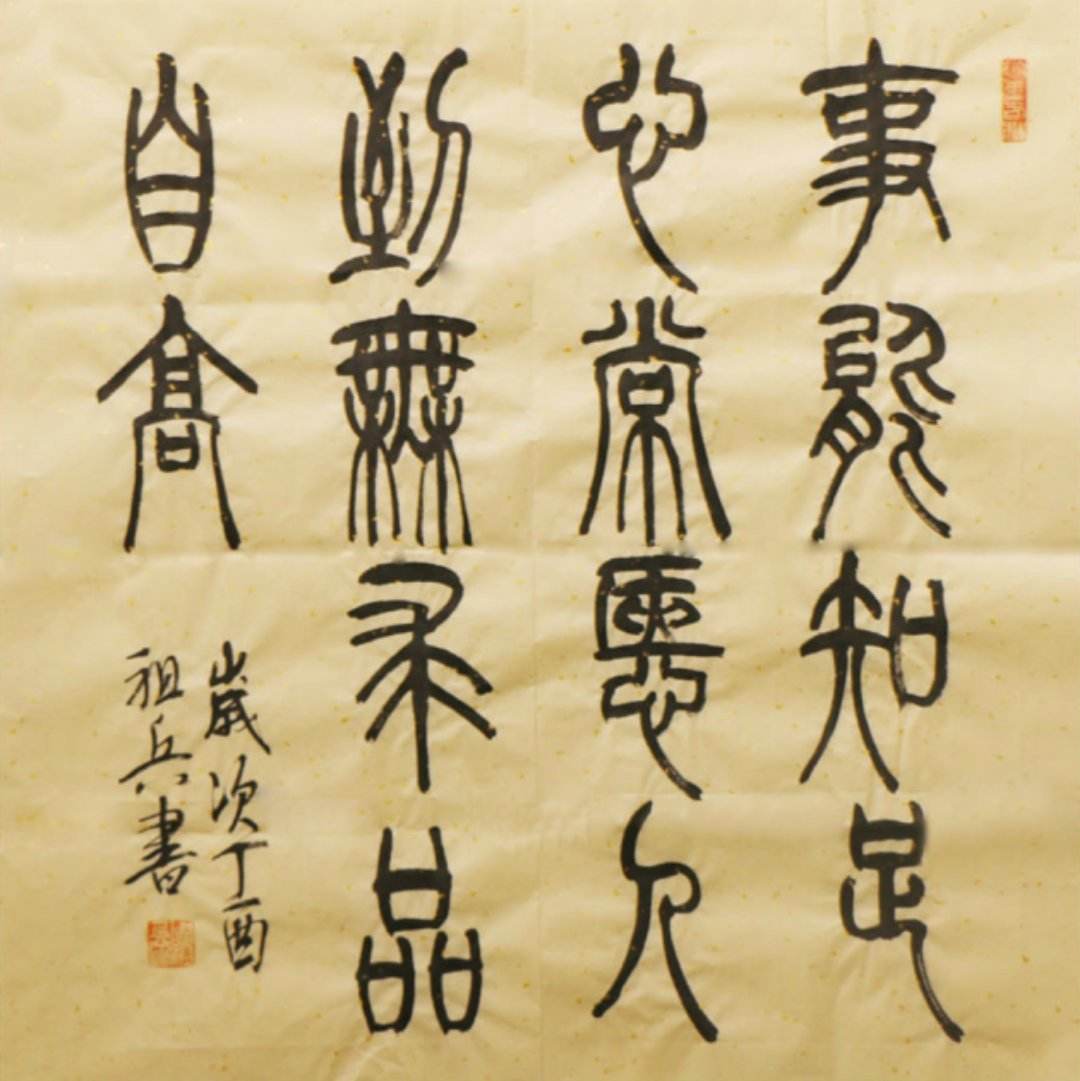 事能知足
心常愜人
到無求品
自高
歲次丁酉
祖兵書